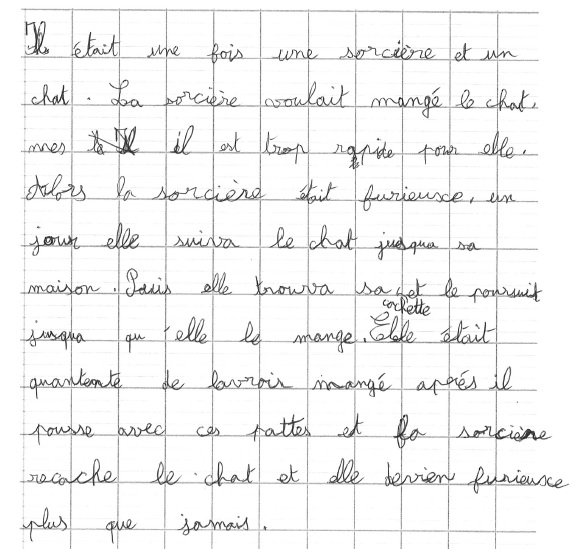 Il était une fois une sorcière et un
chat. La sorcière voulait mangé le chat.
mes il est trop rapide pour elle.
Alors la sorcière était furieuxe, un
jour elle suiva le chat jusqua sa
maison. Puis elle trouva sa cachette et le poursuit
jusqua qu'elle le mange. Elle était
quantente de lavroir mangé aprés il
pousse avec ces pattes et la sorcière
recache le chat et elle devien furieuxe
plus que jamais.